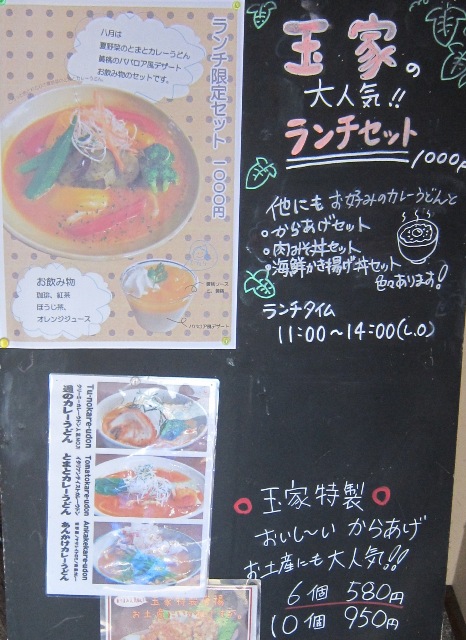 ランチ限定セット 一〇〇〇円
八月は
夏野菜のとまとカレーうどん
黄桃のババロア風デザート
お飲み物のセットです。
お飲み物
珈琲、紅茶
ほうじ茶、
オレンジジュース
黄桃ソース
ババロア風デザート
玉家の
大人気!!
ランチセット
1000円
他にもお好みのカレーうどんと
・からあげセット
・肉みそ丼セット
・海鮮かき揚げ丼セット
色々あります!
ランチタイム
11:00〜14:00(L.O)
Tu-nokare-udon
通のカレーうどん
Tomatokare-udon
イタリアンテイストカレーうどん
とまとカレーうどん
Ankakekare-udon
あんかけカレーうどん
玉家特製
おいし〜い からあげ
お土産にも大人気!!
6個 580円
10個 950円